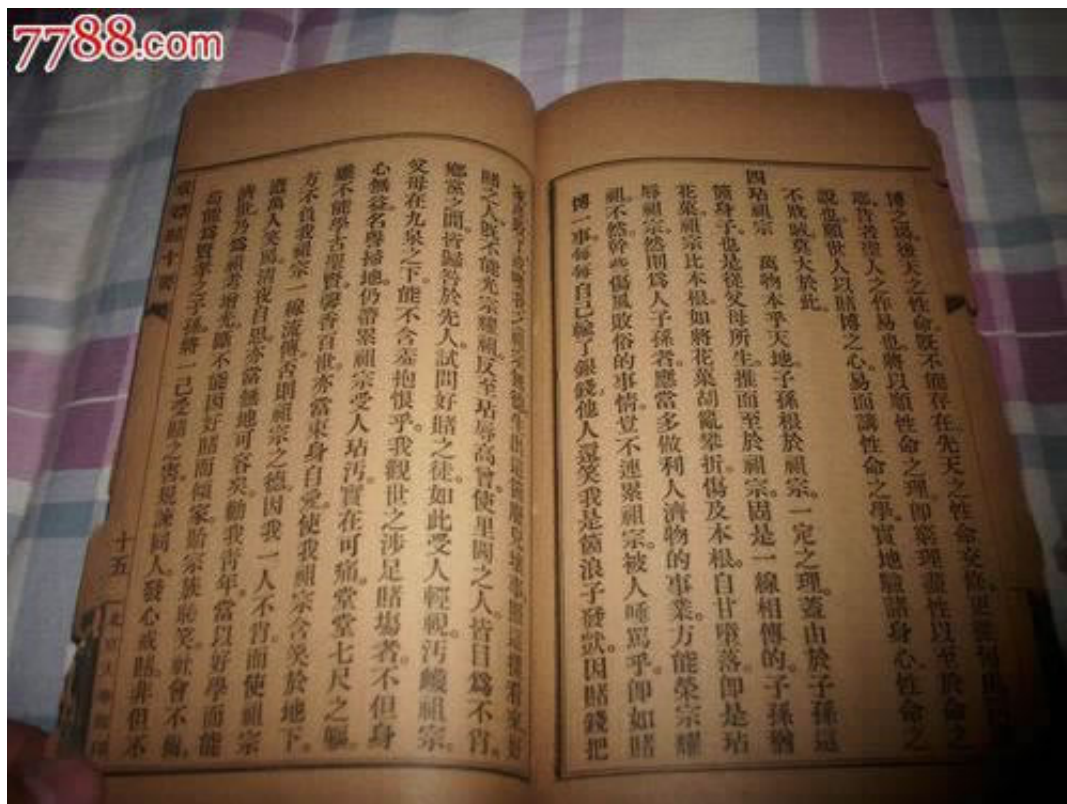 7788.com
博之設。後天之性命。既不能存在。先天之性命安施。
耶。昔者聖人之作易也。將以順性命之理。卽窮理盡性以至於命之
說也。願世人以賭博之心。易而講性命之學。實地驗諸身心性命之
不戕賊莫大於此。
四玷祖宗 萬物本乎天地。子孫根於祖宗。一定之理。蓋由於子孫這
箇身子也。是從父母所生。推而至於祖宗。固是一線相傳的。子孫猶
花菓。祖宗比本根。如將花菓胡亂攀折。傷及本根。自甘墮落。卽是玷
辱祖宗。然則爲人子孫者。應當多做利人濟物的事業。方能榮宗耀
祖。不然。幹些傷風敗俗的事情。覺不連累祖宗。被人唾罵乎。卽如賭
博一事。每每自己輸了銀錢。他人還笑我是箇浪子發獃。因賭錢把
賭之人。旣不能光宗耀祖。反至玷辱高曾。使里閭之人。皆目爲不肖。
鄉黨之間。皆歸咎於先人。試問好賭之徒。如此受人輕視。汚衊祖宗。
父母在九泉之下。能不含羞抱恨乎。我觀世之涉足賭場者。不但身
心無益。名譽掃地。仍帶累祖宗受人玷汚。實在可痛。堂堂七尺之軀。
雖不能學古聖賢。馨香百世。亦當束身自愛。使我祖宗含笑於地下。
方不負我祖宗一線流傳。否則祖宗之德。因我一人不肖。而使祖宗
遭萬人笑罵。清夜自思。亦當無地可容矣。勸我靑年。當以好學而能
濟世。乃爲祖考增光。雖不能因好賭而傾家。貽宗族恥笑。社會不齒。
苟能爲賢孝之子孫。將一己受賭之害。規諫同人。發心戒賭。非但不
戒賭十
十五